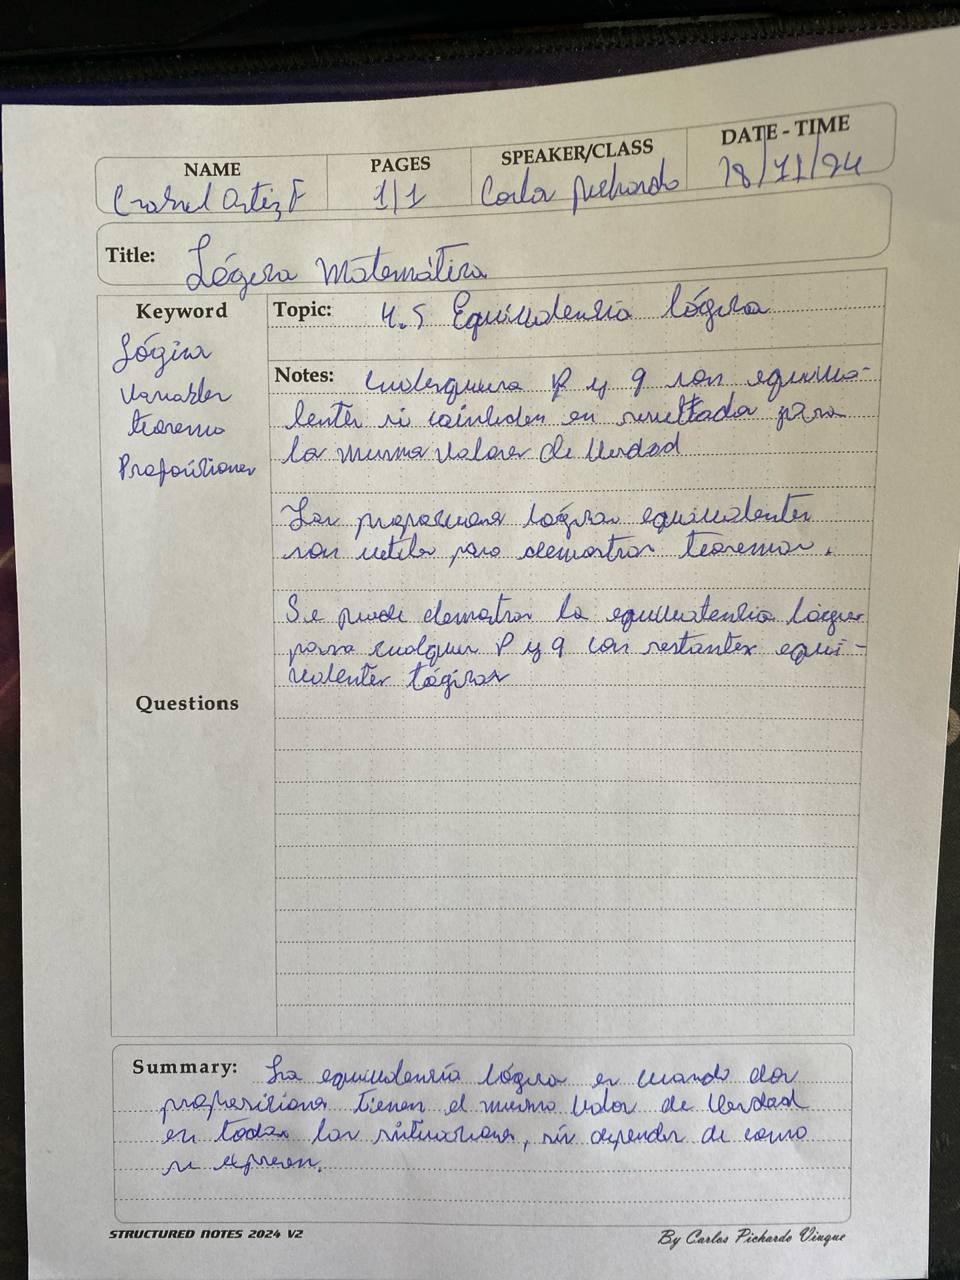 NAME PAGES SPEAKER/CLASS DATE - TIME
Ortiz F 1/1 Pichardo 28/11/24
Title: Lógica Matemática
Keyword
Lógica
Variables
teorema
Proposiciones
Questions
Topic: 4.5 Equivalencia lógica
Notes: Cualesquiera P y q son equiva-
lentes si coinciden en resultados para
los mismos valores de Verdad
Las proposiciones lógicas equivalentes
son utiles para demostrar teoremas.
Se puede demostrar la equivalencia lógica
para cualquier P y q con restantes equi-
valentes lógicas
Summary: La equivalencia lógica es cuando dos
proposiciones tienen el mismo Valor de Verdad
en todas las situaciones, sin depender de como
se expresen.
STRUCTURED NOTES 2024 V2 By Carlos Pichardo Viuque